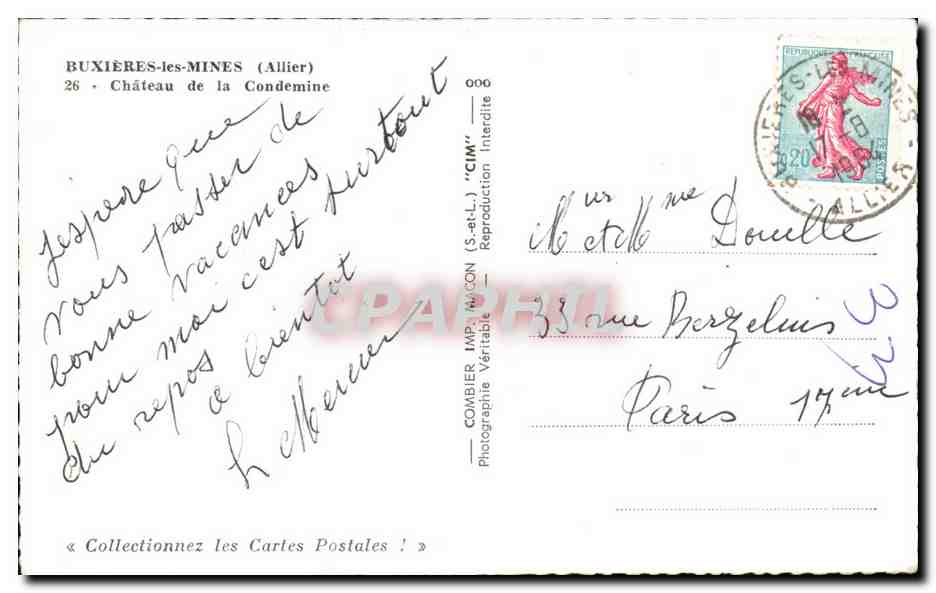 BUXIÈRES-les-MINES (Allier)
26 - Château de la Condemine
J'espère que
vous passer de
bonne vacances
pour moi c'est surtout
du repos
a bientot
L Mercier
« Collectionnez les Cartes Postales ! »
COMBIER IMP. MACON (S.-et-L.) "CIM"
Photographie Véritable — Reproduction Interdite
CPAPHIL
REPUBLIQUE FRANÇAISE
0,20
POSTES
BUXIERES-LES-MINES
ALLIER
Mur et Mme Douelle
33 rue Berzelius
Paris 17eme